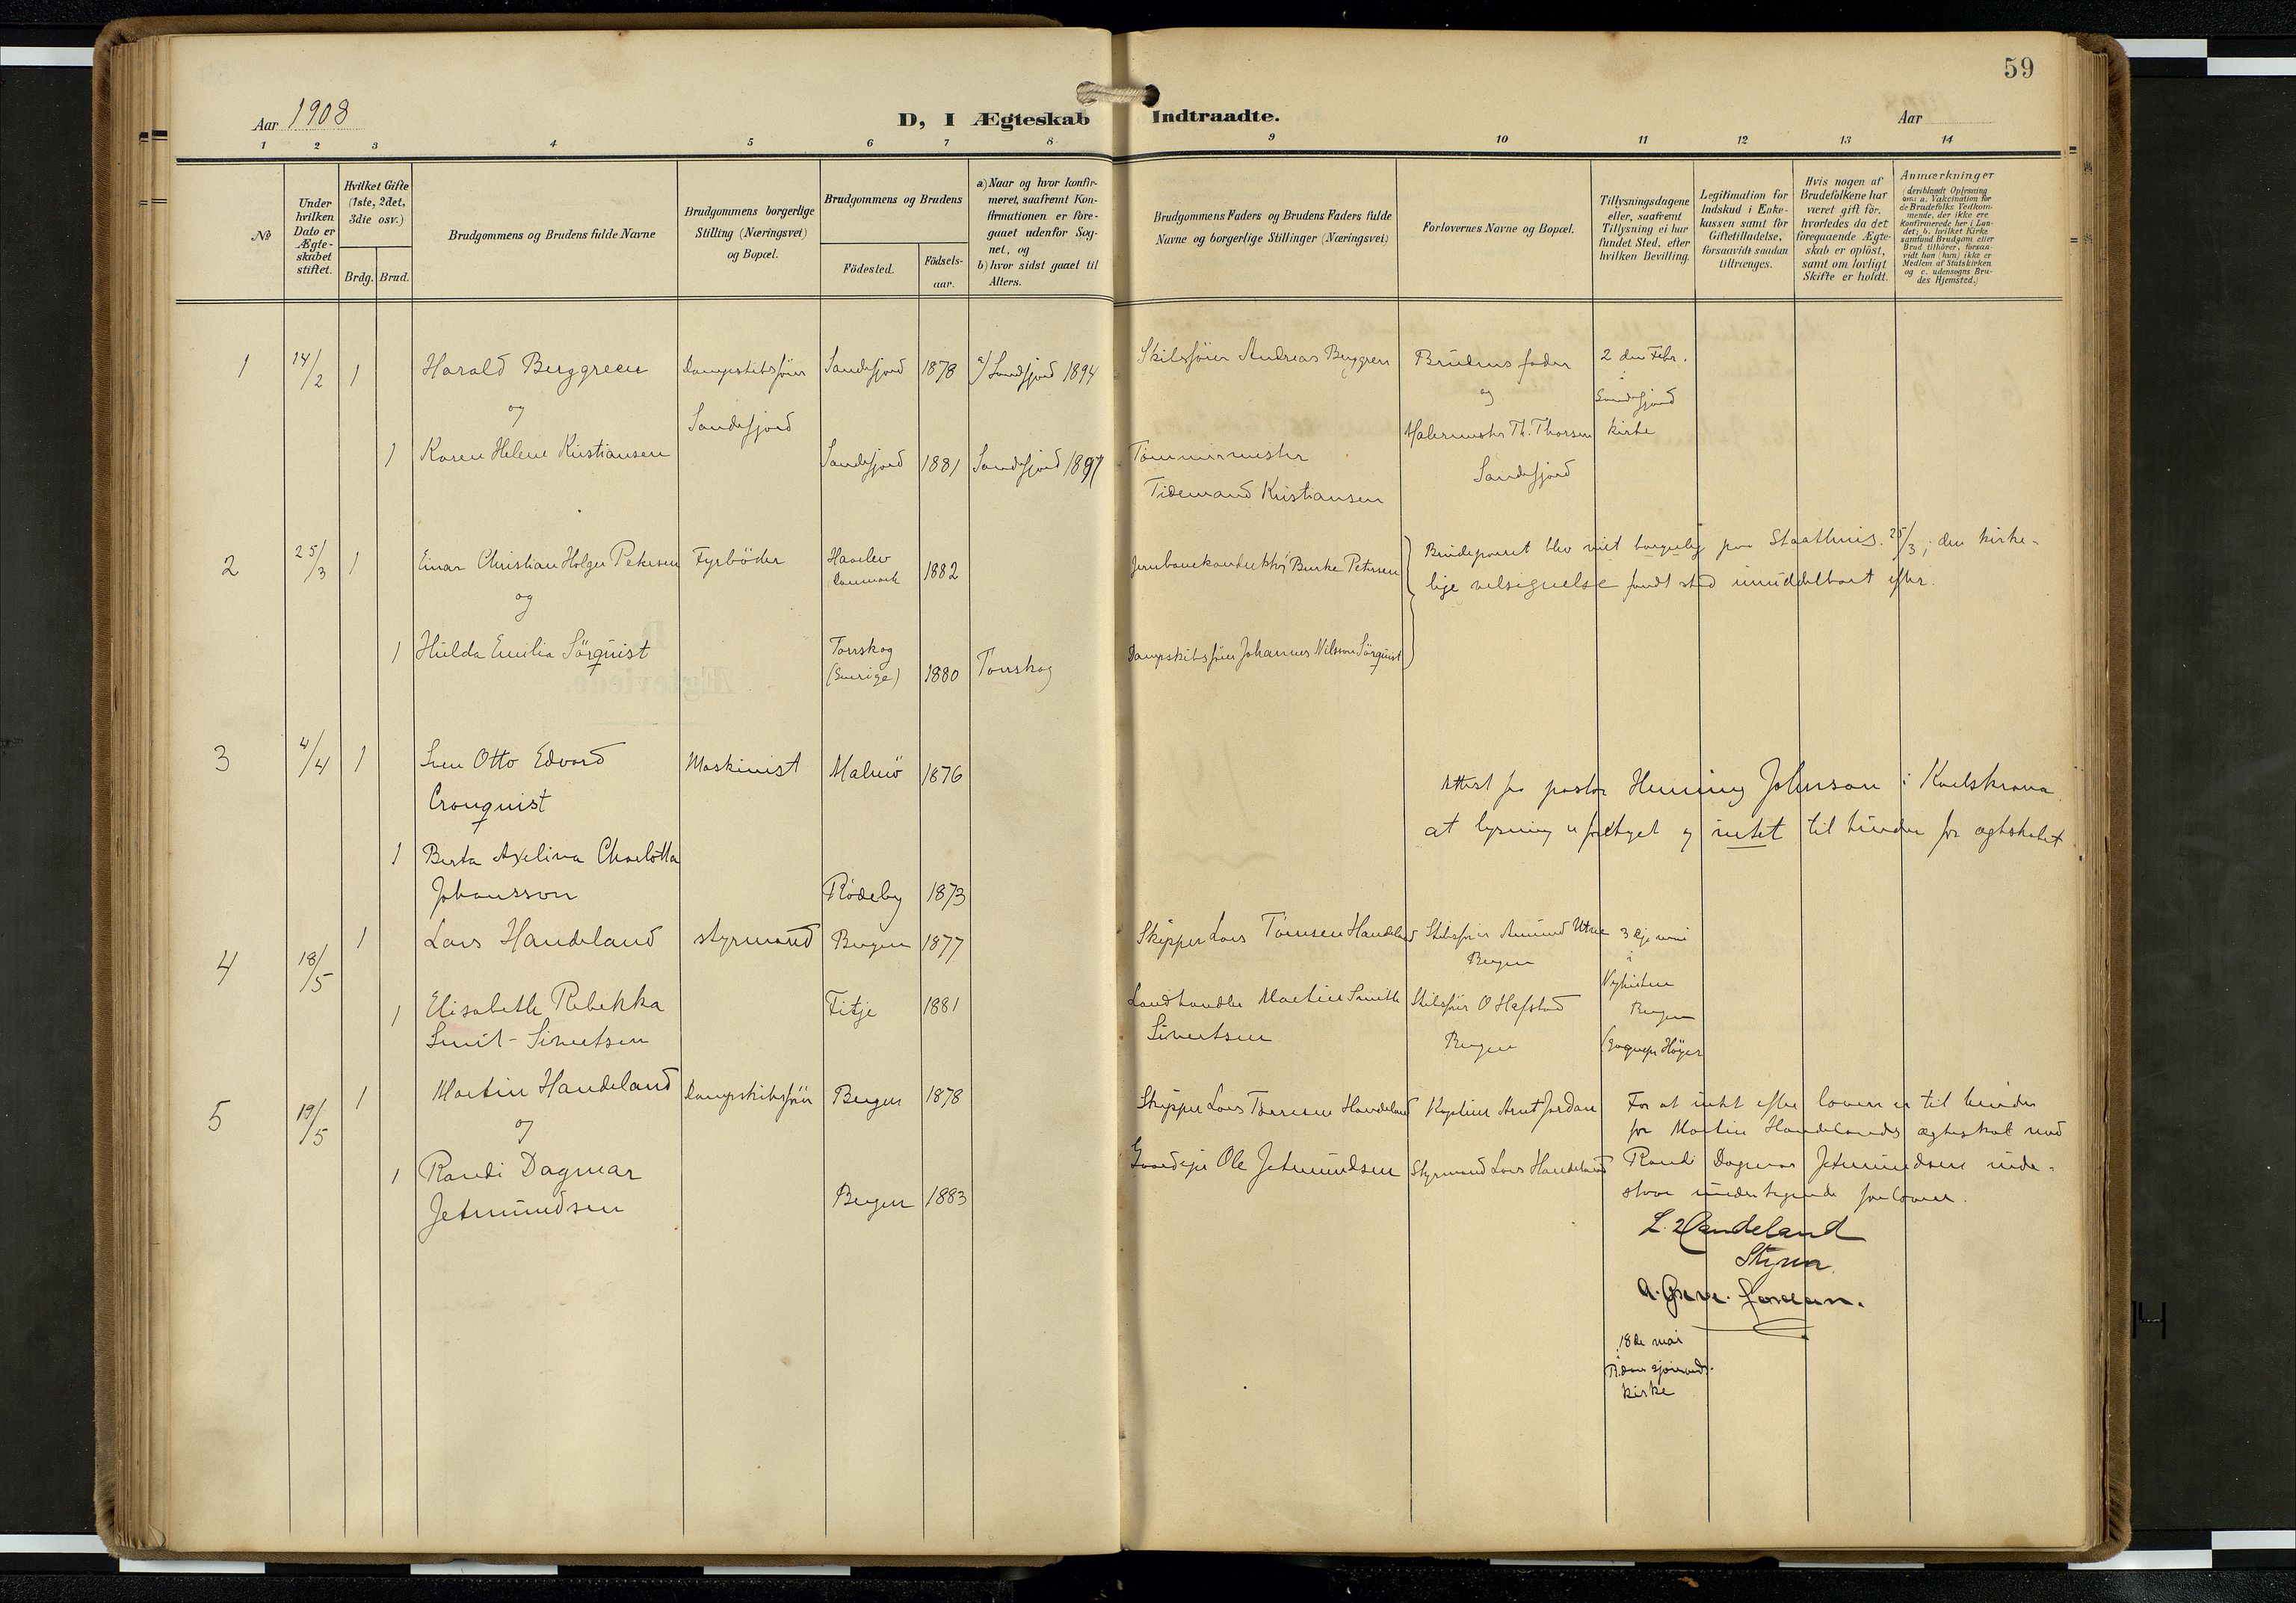 59
Aar 1908
D, I Ægteskab Indtraadte.
Aar
1 2 3 4 5 6 7 8 9 10 11 12 13 14
№
Under hvilken Dato er Ægteskabet stiftet.
Hvilket Gifte (1ste, 2det, 3die osv.)
Brdg. Brud.
Brudgommens og Brudens fulde Navne
Brudgommens borgerlige Stilling (Næringsvei) og Bopæl.
Brudgommens og Brudens
Födested. Födsels-aar.
a) Naar og hvor konfir-
meret, saafremt Kon-
firmationen er fore-
gaaet udenfor Sog-
net, og
b) hvor sidst gaaet til
Alters.
Brudgommens Faders og Brudens Faders fulde
Navne og borgerlige Stillinger (Næringsvei)
Forlovernes Navne og Bopæl.
Tillysningsdagene
eller, saafremt
Tillysning ei har
fundet Sted, efter
hvilken Bevilling.
Legitimation for
Indskud i Enke-
kassen samt for
Giftetilladelse,
forsaavidt saadan
tiltrænges.
Hvis nogen af
Brudefolkene har
været gift för,
hvorledes da det
foregaaende Ægte-
skab er oplöst,
samt om lovligt
Skifte er holdt.
Anmærkninger
(deriblandt Oplysning
om: a. Vakcination for
de Brudefolks Vedkom-
mende, der ikke ere
konfirmerede her i Lan-
det; b. hvilket Kirke
samfund Brudgom eller
Brud tilhörer, forsaa-
vidt han (hun) ikke er
Medlem af Statskirken
og c. udensogns Bru-
des Hjemsted.)
1 14/2 1 Harald Berggreen Dampskibsförer Sandefjord 1878 a/ Sandefjord 1894 Skibsförer Andreas Berggren Brudens fader 2 den Febr.
og Sandefjord og i Sandefjord
1 Karen Helene Kristiansen Sandefjord 1881 Sandefjord 1897 Tömmermester Malermester Th. Thorsen kirke
Tidemand Kristiansen Sandefjord
2 25/3 1 Einar Christian Holger Petersen Fyrböder Haarlev Danmark 1882 Jernbanekonduktör Petersen Brudeparet blev viet borgerlig paa Stadthuis 25/3; den kirke-
og lige velsignelse fandt sted umiddelbart efter.
1 Hulda Emilia Sörquist Torrskog (Sverige) 1880 Torrskog Dampskibsförer Johannes Nilsson Sörquist
3 4/4 1 Sven Otto Edvard Maskinist Malmö 1876
Cronquist Attest fra pastor Henning Johnson i Karlskrona
at lysning er foretaget og intet til hinder for ægteskabet
1 Berta Axelina Charlotta
Johansson Rödeby 1873
4 18/5 1 Lars Handeland styrmand Bergen 1877 Skipper Lars Handeland Skibsförer Amund Utne 3 dje mai
Bergen i
1 Elisabeth Rebekka Fitje 1881 Landhandler Martin Smith Skibsförer O Hafstad Nykirken
Smit-Sivertsen Sivertsen Bergen Bergen
(Sogneprest Höyer
5 19/5 1 Martin Handeland Dampskibsförer Bergen 1878 Skipper Lars Handeland Kaptein Arnt Jordan For at intet efter loven er til hinder
og for Martin Handelands ægteskab med
1 Randi Dagmar Gaardejer Ole Jetmundsen Styrmand Lars Handeland Randi Dagmar Jetmundsen inde-
Jetmundsen Bergen 1883 staar undertegnede forlovere.
L. Handeland
Styrm.
A. Greve. Jordan.
18de mai
i
sjömands-
kirke